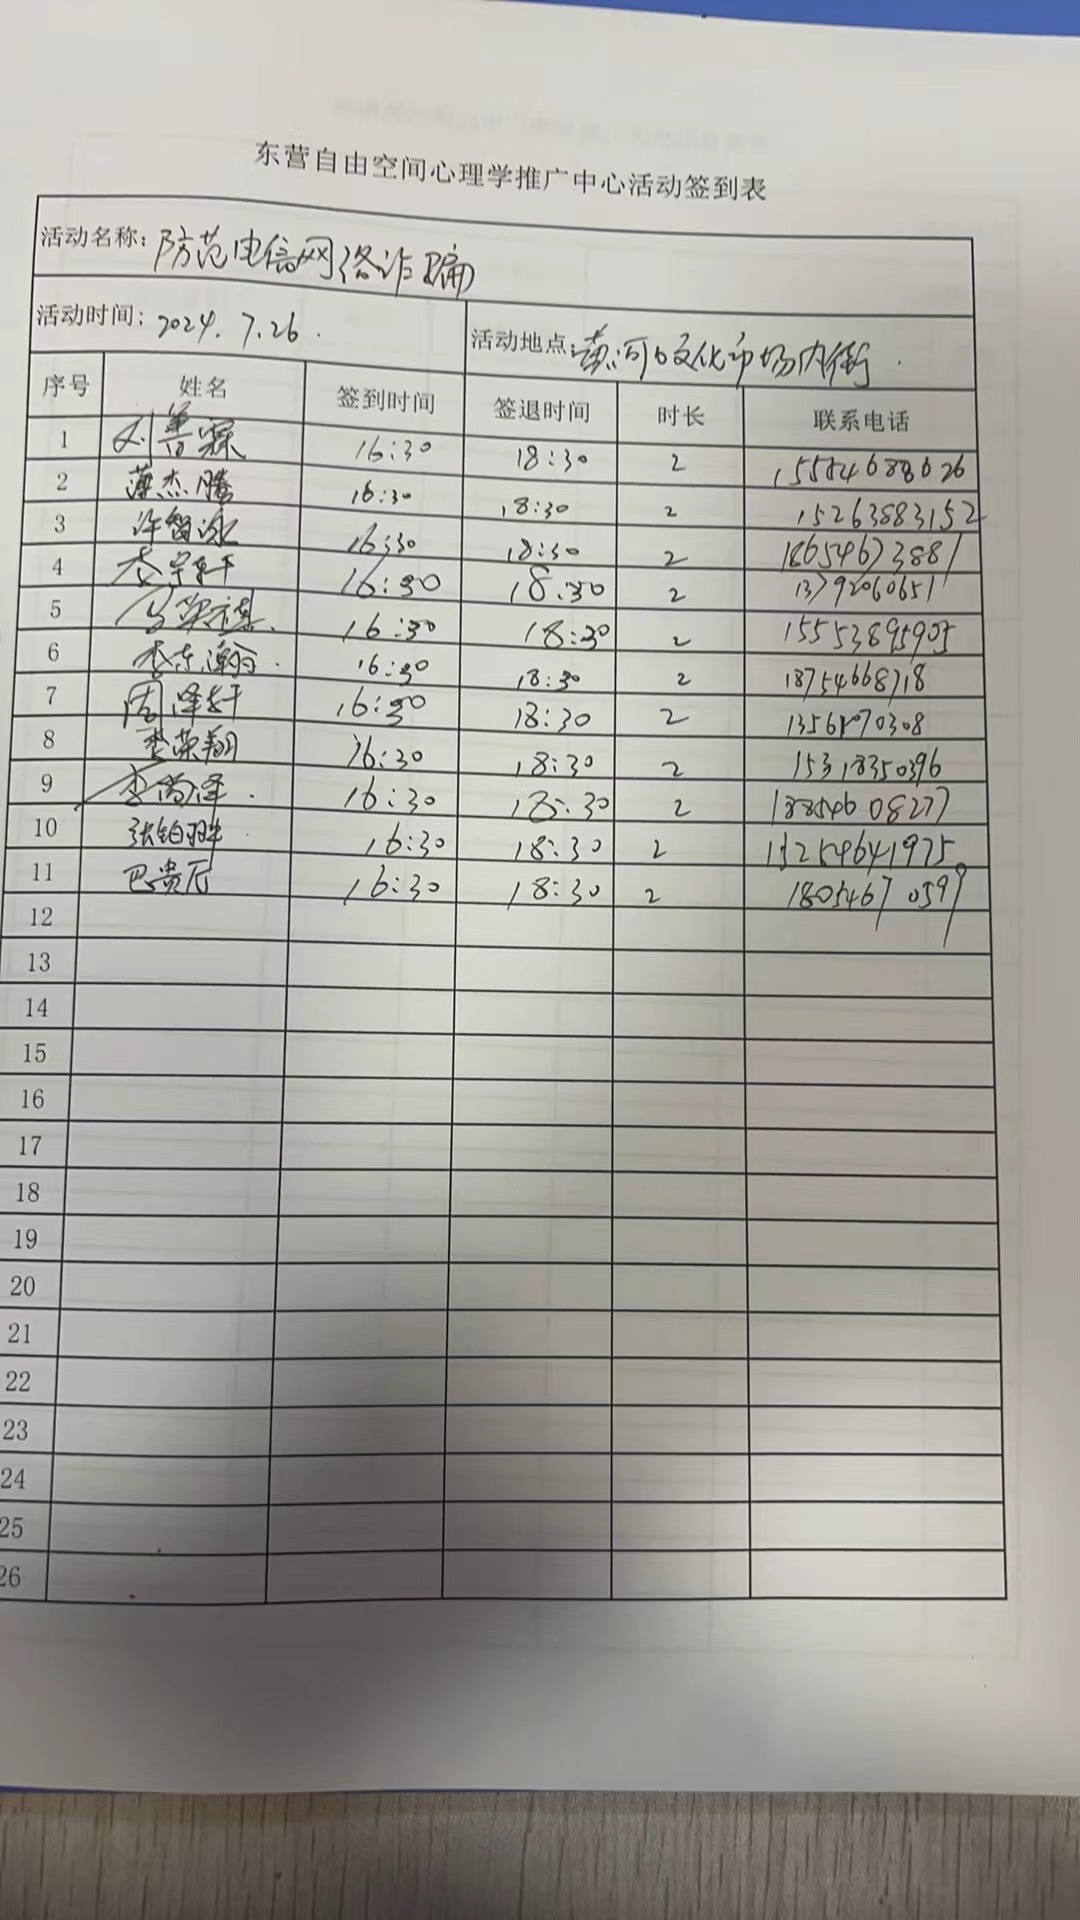 东营自由空间心理学推广中心活动签到表
活动名称：防范电信网络诈骗
活动时间：2024.7.26. 活动地点：黄河口文化市场内街.
序号 姓名 签到时间 签退时间 时长 联系电话
1 刘善霖 16:30 18:30 2
2 薄杰腾 16:30 18:30 2 15263883152
3 16:30 18:30 2 18654673881
4 李宇轩 16:30 18:30 2 13792060651
5 16:30 18:30 2 15553895905
6 李东瀚. 16:30 18:30 2 18754668718
7 周泽轩 16:30 18:30 2
8 李荣翔 16:30 18:30 2 15318350396
9 李尚泽. 16:30 18:30 2 18854608277
10 16:30 18:30 2
11 巴贵厄 16:30 18:30 2 18054670597
12
13
14
15
16
17
18
19
20
21
22
23
24
25
26